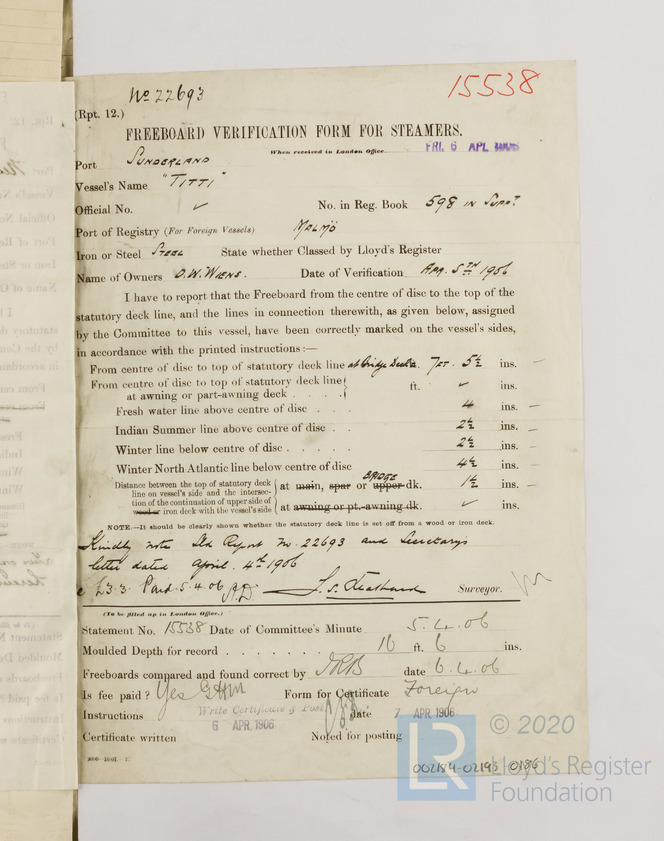 No 22693
15538
(Rpt. 12.)
FREEBOARD VERIFICATION FORM FOR STEAMERS.
When received in London Office. FRI. 6 APL 1906
Port Sunderland
Vessel's Name "Titti"
Official No. ✓ No. in Reg. Book 598 in Suppt
Port of Registry (For Foreign Vessels) Malmö
Iron or Steel Steel State whether Classed by Lloyd's Register
Name of Owners O. W. Wiens. Date of Verification Apr. 5TH 1906
I have to report that the Freeboard from the centre of disc to the top of the
statutory deck line, and the lines in connection therewith, as given below, assigned
by the Committee to this vessel, have been correctly marked on the vessel's sides,
in accordance with the printed instructions :—
From centre of disc to top of statutory deck line at Bridge Deck 7 FT. 5½ ins. –
From centre of disc to top of statutory deck line
at awning or part-awning deck . . . . ft. ✓ ins.
Fresh water line above centre of disc . . . 4 ins. –
Indian Summer line above centre of disc . . 2½ ins. –
Winter line below centre of disc . . . . . 2½ ins. –
Winter North Atlantic line below centre of disc 4½ ins. –
Distance between the top of statutory deck
line on vessel's side and the intersec-
tion of the continuation of upper side of
wood or iron deck with the vessel's side
at main, spar or upper dk. BRIDGE 1½ ins. –
at awning or pt.-awning dk. ✓ ins.
NOTE.—It should be clearly shown whether the statutory deck line is set off from a wood or iron deck.
Kindly note Sld Report No. 22693 and Secretary's
letter dated April. 4th 1906
£3.3. Paid. 5.4.06 Surveyor.
(To be filled up in London Office.)
Statement No. 15538 Date of Committee's Minute 5.4.06
Moulded Depth for record . . . . . . . 16 ft. 6 ins.
Freeboards compared and found correct by date 6.4.06
Is fee paid ? Yes Form for Certificate Foreign
Instructions Write Certificate & Post date 7 APR. 1906
6 APR. 1906
Certificate written Noted for posting
002184-02193-0186
LR © 2020
Lloyd's Register
Foundation